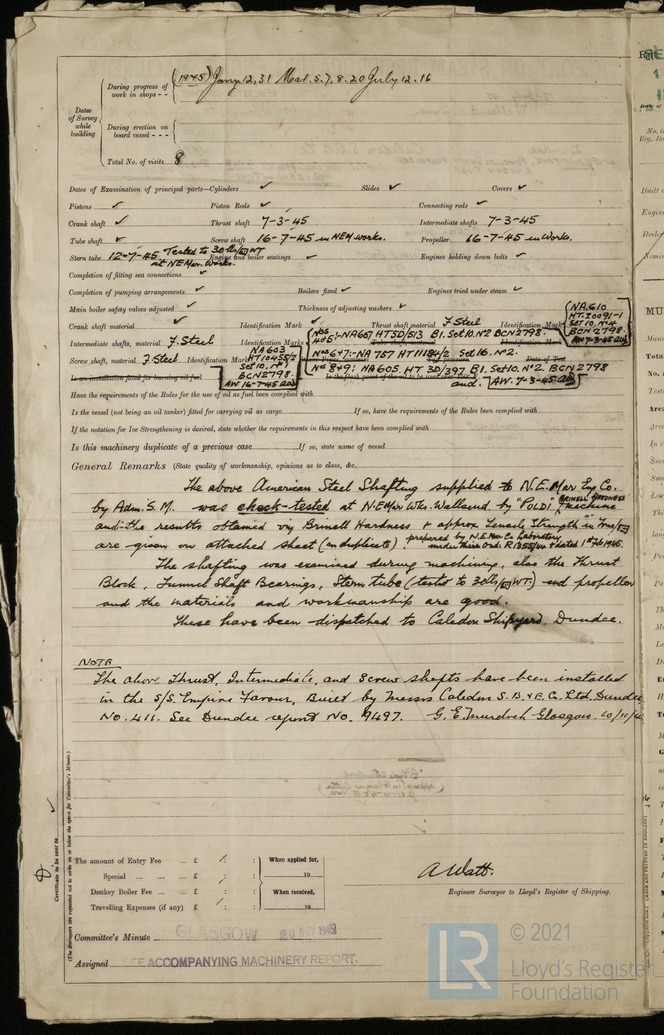 Dates of Survey while building
During progress of work in shops - - (1945) Jany 12, 31 Mar. 5. 7. 8. 20 July 12. 16
During erection on board vessel - - -
Total No. of visits 8
Dates of Examination of principal parts—Cylinders ✓ Slides ✓ Covers ✓
Pistons ✓ Piston Rods ✓ Connecting rods ✓
Crank shaft ✓ Thrust shaft 7-3-45 Intermediate shafts 7-3-45
Tube shaft ✓ Screw shaft 16-7-45 in NEM works. Propeller 16-7-45 in Works.
Stern tube 12-7-45 Tested to 30 lbs/□" WT at N.E.Mar. Works. Engine and boiler seatings ✓ Engines holding down bolts ✓
Completion of fitting sea connections ✓
Completion of pumping arrangements ✓ Boilers fixed ✓ Engines tried under steam ✓
Main boiler safety valves adjusted ✓ Thickness of adjusting washers ✓
Crank shaft material ✓ Identification Mark ✓ Thrust shaft material F. Steel Identification Mark NA 610 HT. 20091-1 SET 10. No 4 BCN 2798 AW 7-3-45
Intermediate shafts, material F. Steel Identification Marks Nos 4&5: NA687 HT 3D/513 B1. Set 10. No 2 BCN 2798.
Nos 6&7: NA 757 HT 11184/2 Set 16. No 2.
Screw shaft, material F. Steel Identification Mark NA 603 HT 10455/2 SET 10. No 1 BCN 2798. AW 16-7-45
Nos 8&9: NA 605. HT 3D/397 B1 Set 10. No 2. BCN 2798
and. AW. 7-3-45.
Is an installation fitted for burning oil fuel
Have the requirements of the Rules for the use of oil as fuel been complied with
Is the vessel (not being an oil tanker) fitted for carrying oil as cargo If so, have the requirements of the Rules been complied with
If the notation for Ice Strengthening is desired, state whether the requirements in this respect have been complied with
Is this machinery duplicate of a previous case If so, state name of vessel
General Remarks (State quality of workmanship, opinions as to class, &c.
The above American Steel Shafting supplied to N.E. Mar Eng Co.
by Adm. S.M. was check-tested at N.E.Mar Wks. Wallsend by "POLDI" BRINELL HARDNESS machine
and the results obtained viz Brinell Hardness & approx Tensile Strength in Tons/□"
are given on attached sheet (in duplicate). prepared by N.E. Mar. Co. Laboratory
The shafting was examined during machining, also the Thrust
Block, Tunnel Shaft Bearings, Stern tube (tested to 30 lbs/□" WT.) and propeller
and the materials and workmanship are good.
These have been dispatched to Caledon Shipyard, Dundee.
NOTE
The above Thrust, Intermediate, and Screw shafts have been installed
in the S/S. Empire Favour, Built by Messrs Caledon S.B. & E. Co. Ltd, Dundee
No. 411. See Dundee report No. 9497. G. E. Murdoch Glasgow.
Certificate to be sent to
(The Surveyors are requested not to write on or below the space for Committee's Minute.)
The amount of Entry Fee ... £ : : When applied for,
Special ... ... £ : : 19
Donkey Boiler Fee ... £ : : When received,
Travelling Expenses (if any) £ : : 19
A Watt.
Engineer Surveyor to Lloyd's Register of Shipping.
Committee's Minute GLASGOW 20 NOV 1945
Assigned SEE ACCOMPANYING MACHINERY REPORT.
LR
© 2021
Lloyd's Register
Foundation